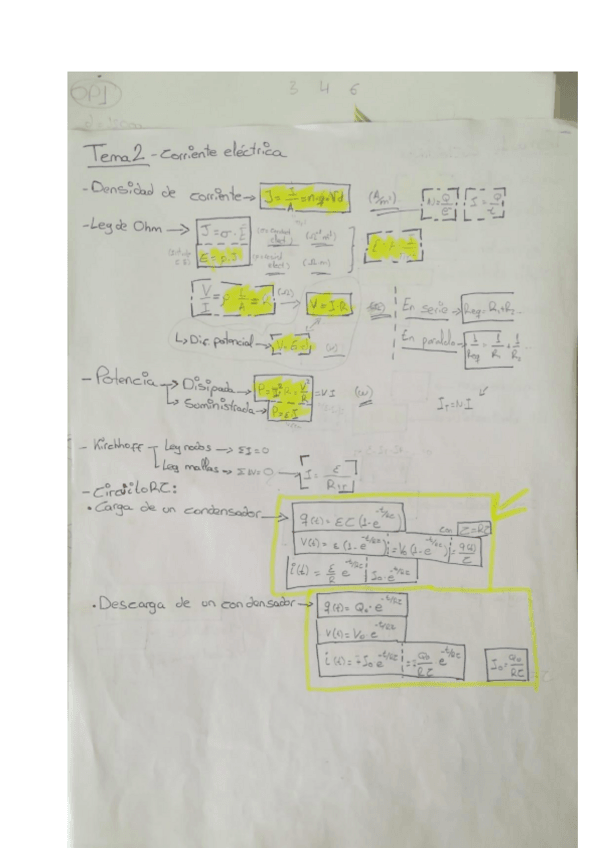 OPI
3 4 6
Tema 2 - Corriente eléctrica
- Densidad de corriente → J = I/A = n·q·Vd (A/m²) N = Q/e I = Q/t
- Ley de Ohm → J = σ·E
E = ρ·J
V/I = ρ·L/A = R (Ω) → V = I·R
En serie → Req = R₁+R₂...
En paralelo → 1/Req = 1/R₁ + 1/R₂
↳ Dif. potencial →
- Potencia → Disipada → P = I²·R = V²/R = VI (W)
↳ Suministrada → P = εI
I_T = NI
- Kirchhoff → Ley nodos → ΣI = 0
↳ Ley mallas → ΣW = 0 → I = ε/R+r
- Circuito RC:
• Carga de un condensador → q(t) = εC (1-e^-t/RC)
con τ = RC
V(t) = ε (1-e^-t/RC) = V₀ (1-e^-t/RC) = q(t)/C
i(t) = ε/R e^-t/RC I₀·e^-t/RC
• Descarga de un condensador → q(t) = Q₀·e^-t/RC
V(t) = V₀ e^-t/RC
i(t) = I₀ e^-t/RC = Q₀/RC e^-t/RC I₀ = Q₀/RC